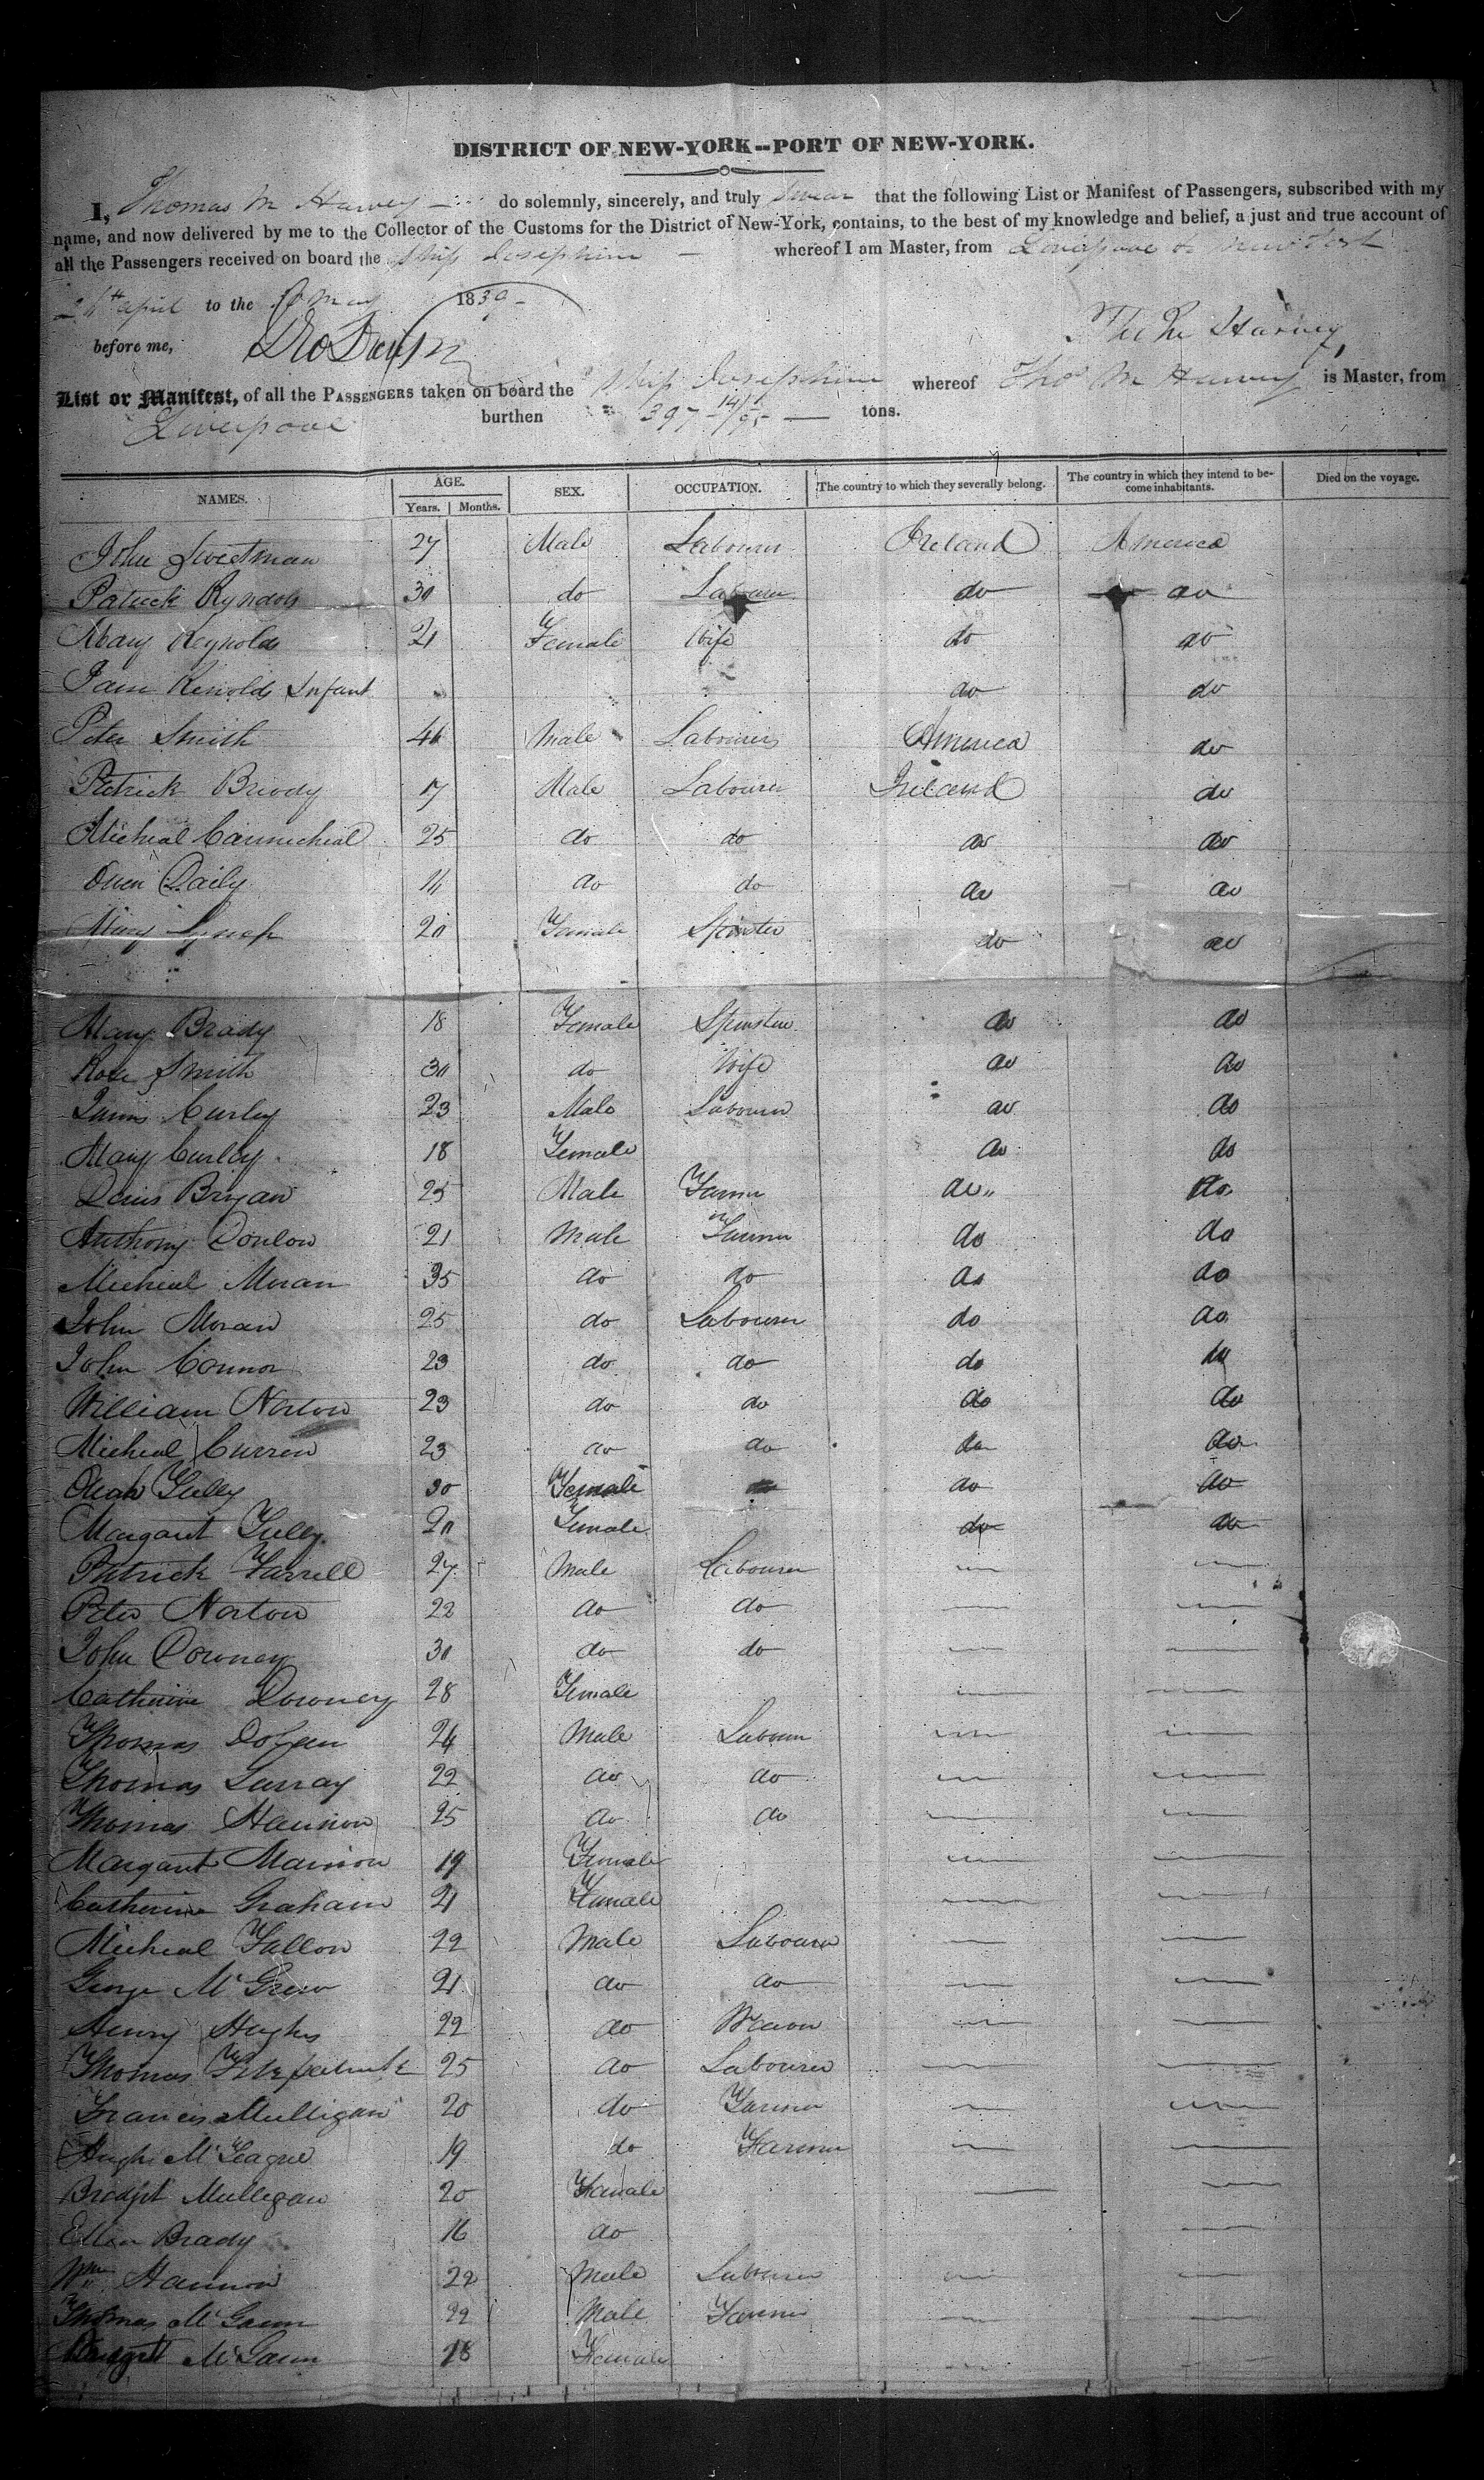 DISTRICT OF NEW-YORK--PORT OF NEW-YORK.
I, Thomas M Harvey do solemnly, sincerely, and truly swear that the following List or Manifest of Passengers, subscribed with my
name, and now delivered by me to the Collector of the Customs for the District of New-York, contains, to the best of my knowledge and belief, a just and true account of
all the Passengers received on board the Ship Josephine whereof I am Master, from Liverpool
april to the May 1839
before me, Harvey
List or Manifest, of all the PASSENGERS taken on board the Ship Josephine whereof Thos M Harvey is Master, from
Liverpool burthen 397 14/95 tons.
NAMES. AGE. Years. Months. SEX. OCCUPATION. The country to which they severally belong. The country in which they intend to become inhabitants. Died on the voyage.
John Sweetman 27 Male Labourer Ireland America
Patrick 30 do Labourer do do
Mary Reynolds 21 Female Wife do do
Renolds Infant do do
Peter Smith Male Labourer America do
Patrick Briody 17 Male Labourer Ireland do
Micheal Carmichial 25 do do do do
Owen Daily do do do do
Mary Lynch 20 Female Spinster do do
Mary Brady 18 Female Spinster do do
Rose Smith 30 do Wife do do
James Curley 23 Male Labourer do do
Mary Curley 18 Female do do
Denis Bryan 25 Male Farmer do do
Anthony Donlow 21 Male Farmer do do
Micheal Moran 35 do do do do
John Moran 25 do Labourer do do
John Connor 23 do do do do
William Norton 23 do do do do
Micheal Curren 23 do do do do
30 Female do do
Margaret 20 Female do do
Patrick Farrell 27 Male Labourer
Peter Norton 22 do do
John Downey 30 do do
Catherine Downey 28 Female
Thomas Dolan 24 Male Labourer
Thomas 22 do do
Thomas Hannon 25 do do
Margaret Mannion 19 Female
Catherine Graham 21 Female
Micheal Fallon 22 Male Labourer
George McGrew 21 do do
Henry Hughes 22 do Mason
Thomas Fitzpatrick 25 do Labourer
Francis Mulligan 20 do Farmer
Hugh McTeague 19 do Farmer
Bredjit Mulligan 20 Female
Ellen Brady 16 do
Wm Hannon 22 Male Labourer
Thomas McGann 22 Male Farmer
McGann 18 Female